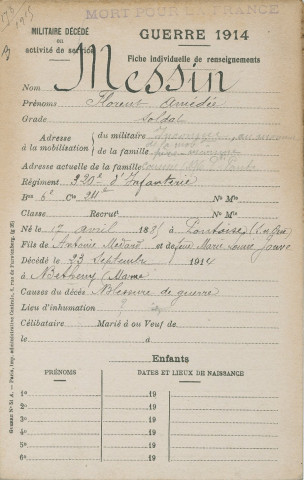 MORT POUR LA FRANCE
1915
MILITAIRE DÉCÉDÉ
en
activité de service
GUERRE 1914
Fiche individuelle de renseignements
Nom Messin
Prénoms Florent Amédée
Grade Soldat
Adresse à la mobilisation
du militaire
de la famille
Adresse actuelle de la famille
Régiment 320e d'Infanterie
Bon 6e Cie 24e No Mle
Classe Recrut No Mle
Né le 12 avril 18 à Pontoise
Fils de Antoine Médard et de feue Marie Louise
Décédé le 23 Septembre 1914
à Betheny (Marne)
Causes du décès Blessure de guerre
Lieu d'inhumation ?
Célibataire Marié à ou Veuf de
le à
Enfants
PRÉNOMS DATES ET LIEUX DE NAISSANCE
1o 19
2o 19
3o 19
4o 19
5o 19
6o 19